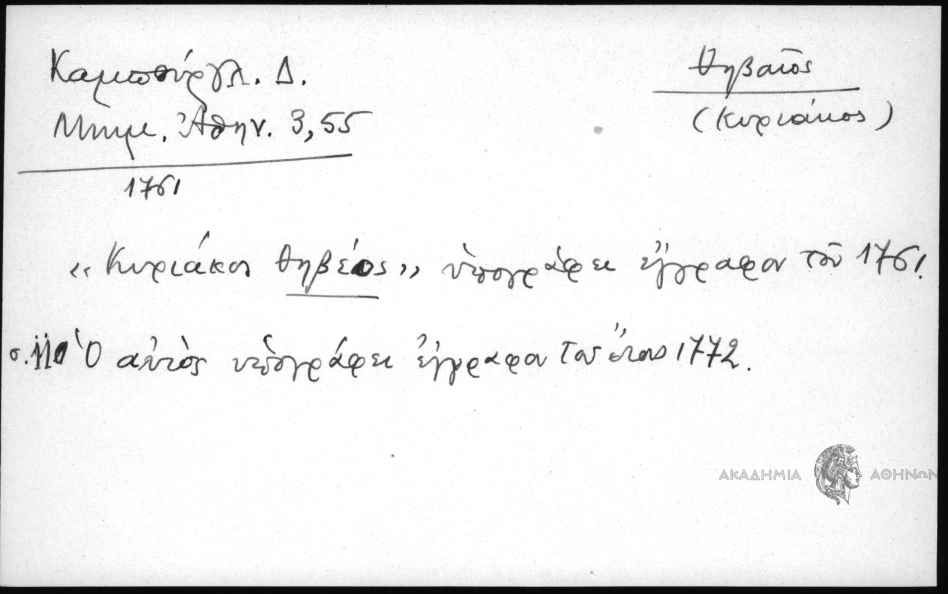 Καμπούρογλ. Δ.
Μνημ. Ἀθην. 3,55
1761
Θηβαῖος
(Κυριάκος)
«Κυριάκος Θηβέος» ὑπογράφει ἔγγραφον τοῦ 1761.
σ. 110 Ὁ αὐτὸς ὑπογράφει ἔγγραφον τοῦ ἔτους 1772.
ΑΚΑΔΗΜΙΑ ΑΘΗΝΩΝ